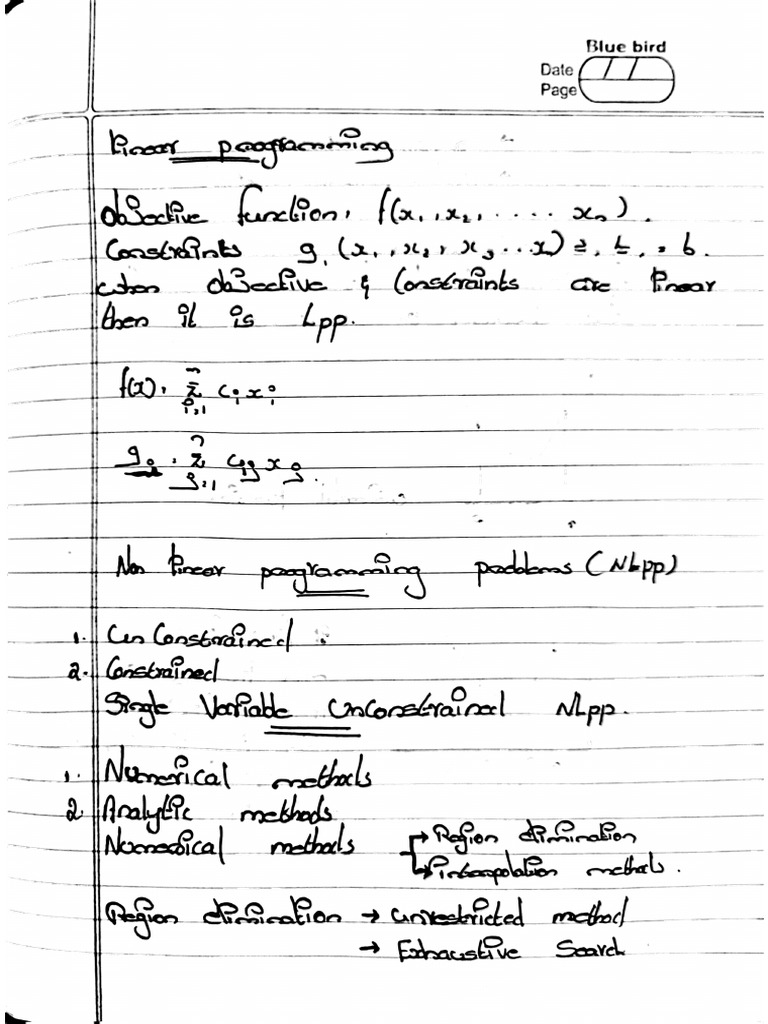 Blue bird
Date / /
Page
Linear programming
Objective function, f(x₁, x₂, .... xₙ).
Constraints gᵢ (x₁, x₂, x₃ ... xₙ) ≥, ≤, = b.
when objective & Constraints are linear
then it is Lpp.
f(x) = Σⁿᵢ₌₁ cᵢ xᵢ
gᵢ = Σⁿⱼ₌₁ cᵢⱼ xⱼ.
Non linear programming problems (NLpp)
1. Un Constrained
2. Constrained
Single Variable Unconstrained NLpp.
1. Numerical methods
2. Analytic methods
Numerical methods → Region elimination
→ interpolation methods.
Region elimination → unrestricted method
→ Exhaustive Search